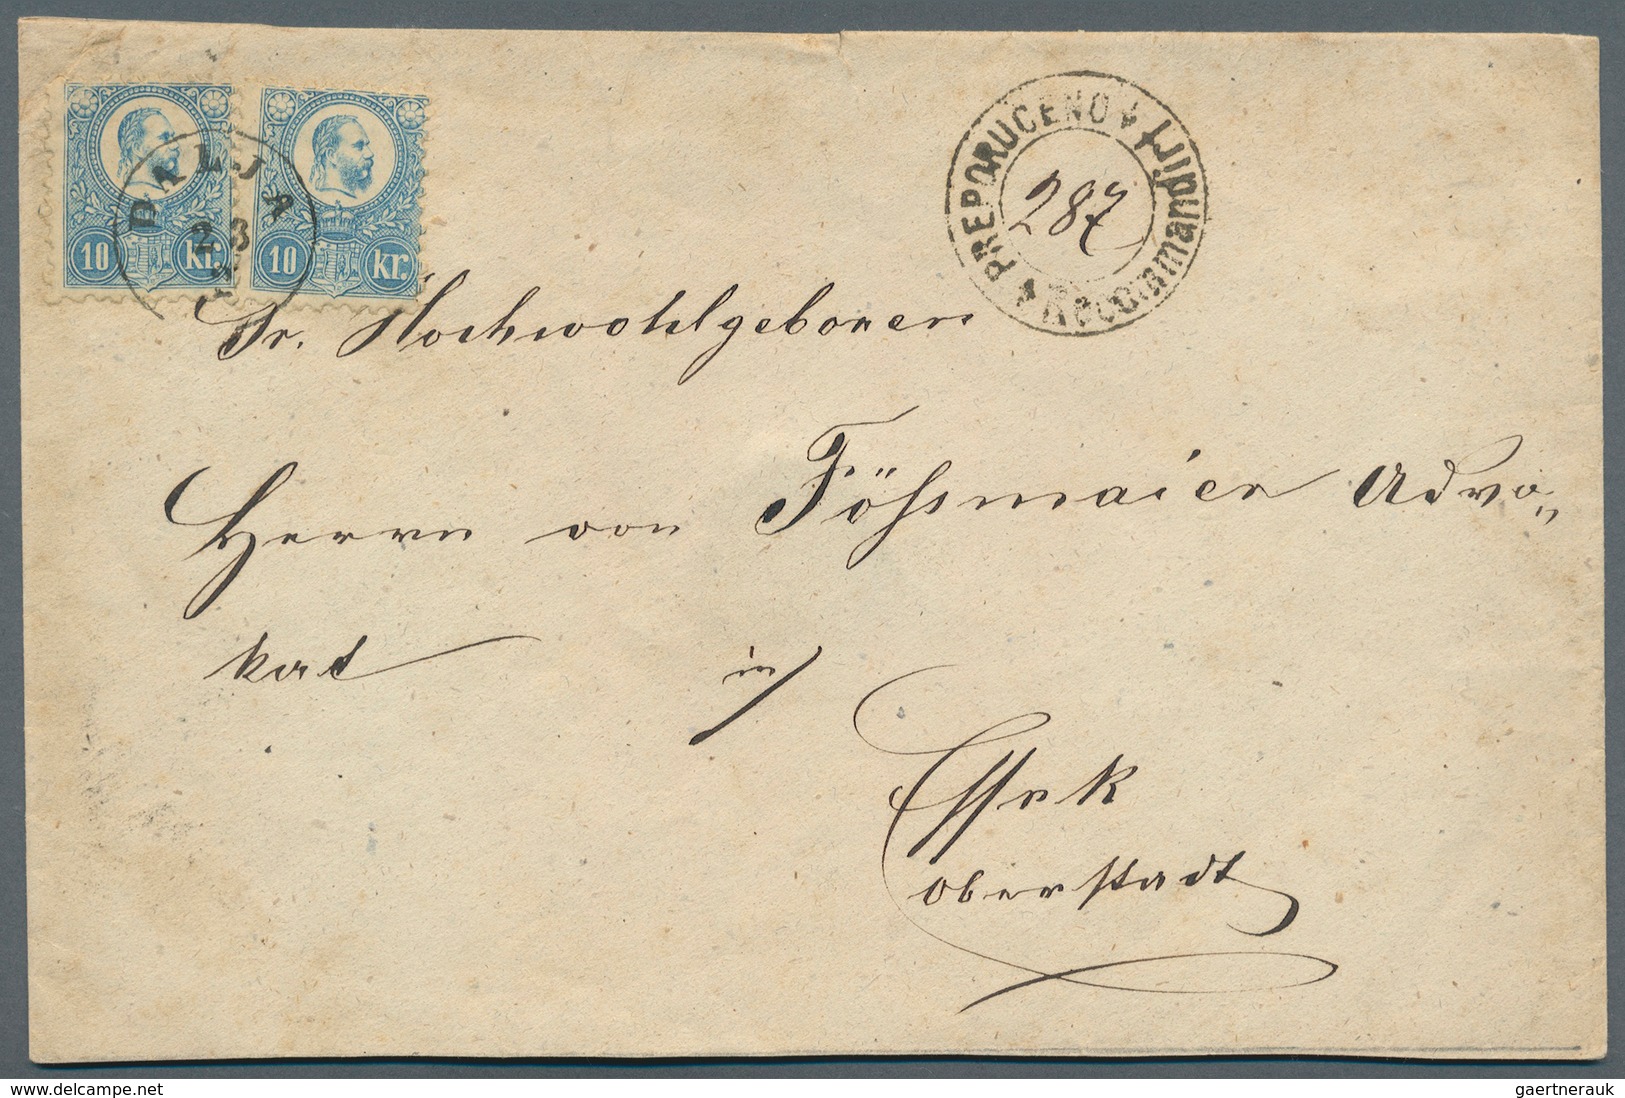 10 kr.
10 kr.
DALJA
23
PREPORUCENO
Recommandirt
287
Sr. Hochwohlgeboren
Herrn von Fößmaier Advo„
kat in
Essek
Oberstadt
www.delcampe.net
gaertnerauk